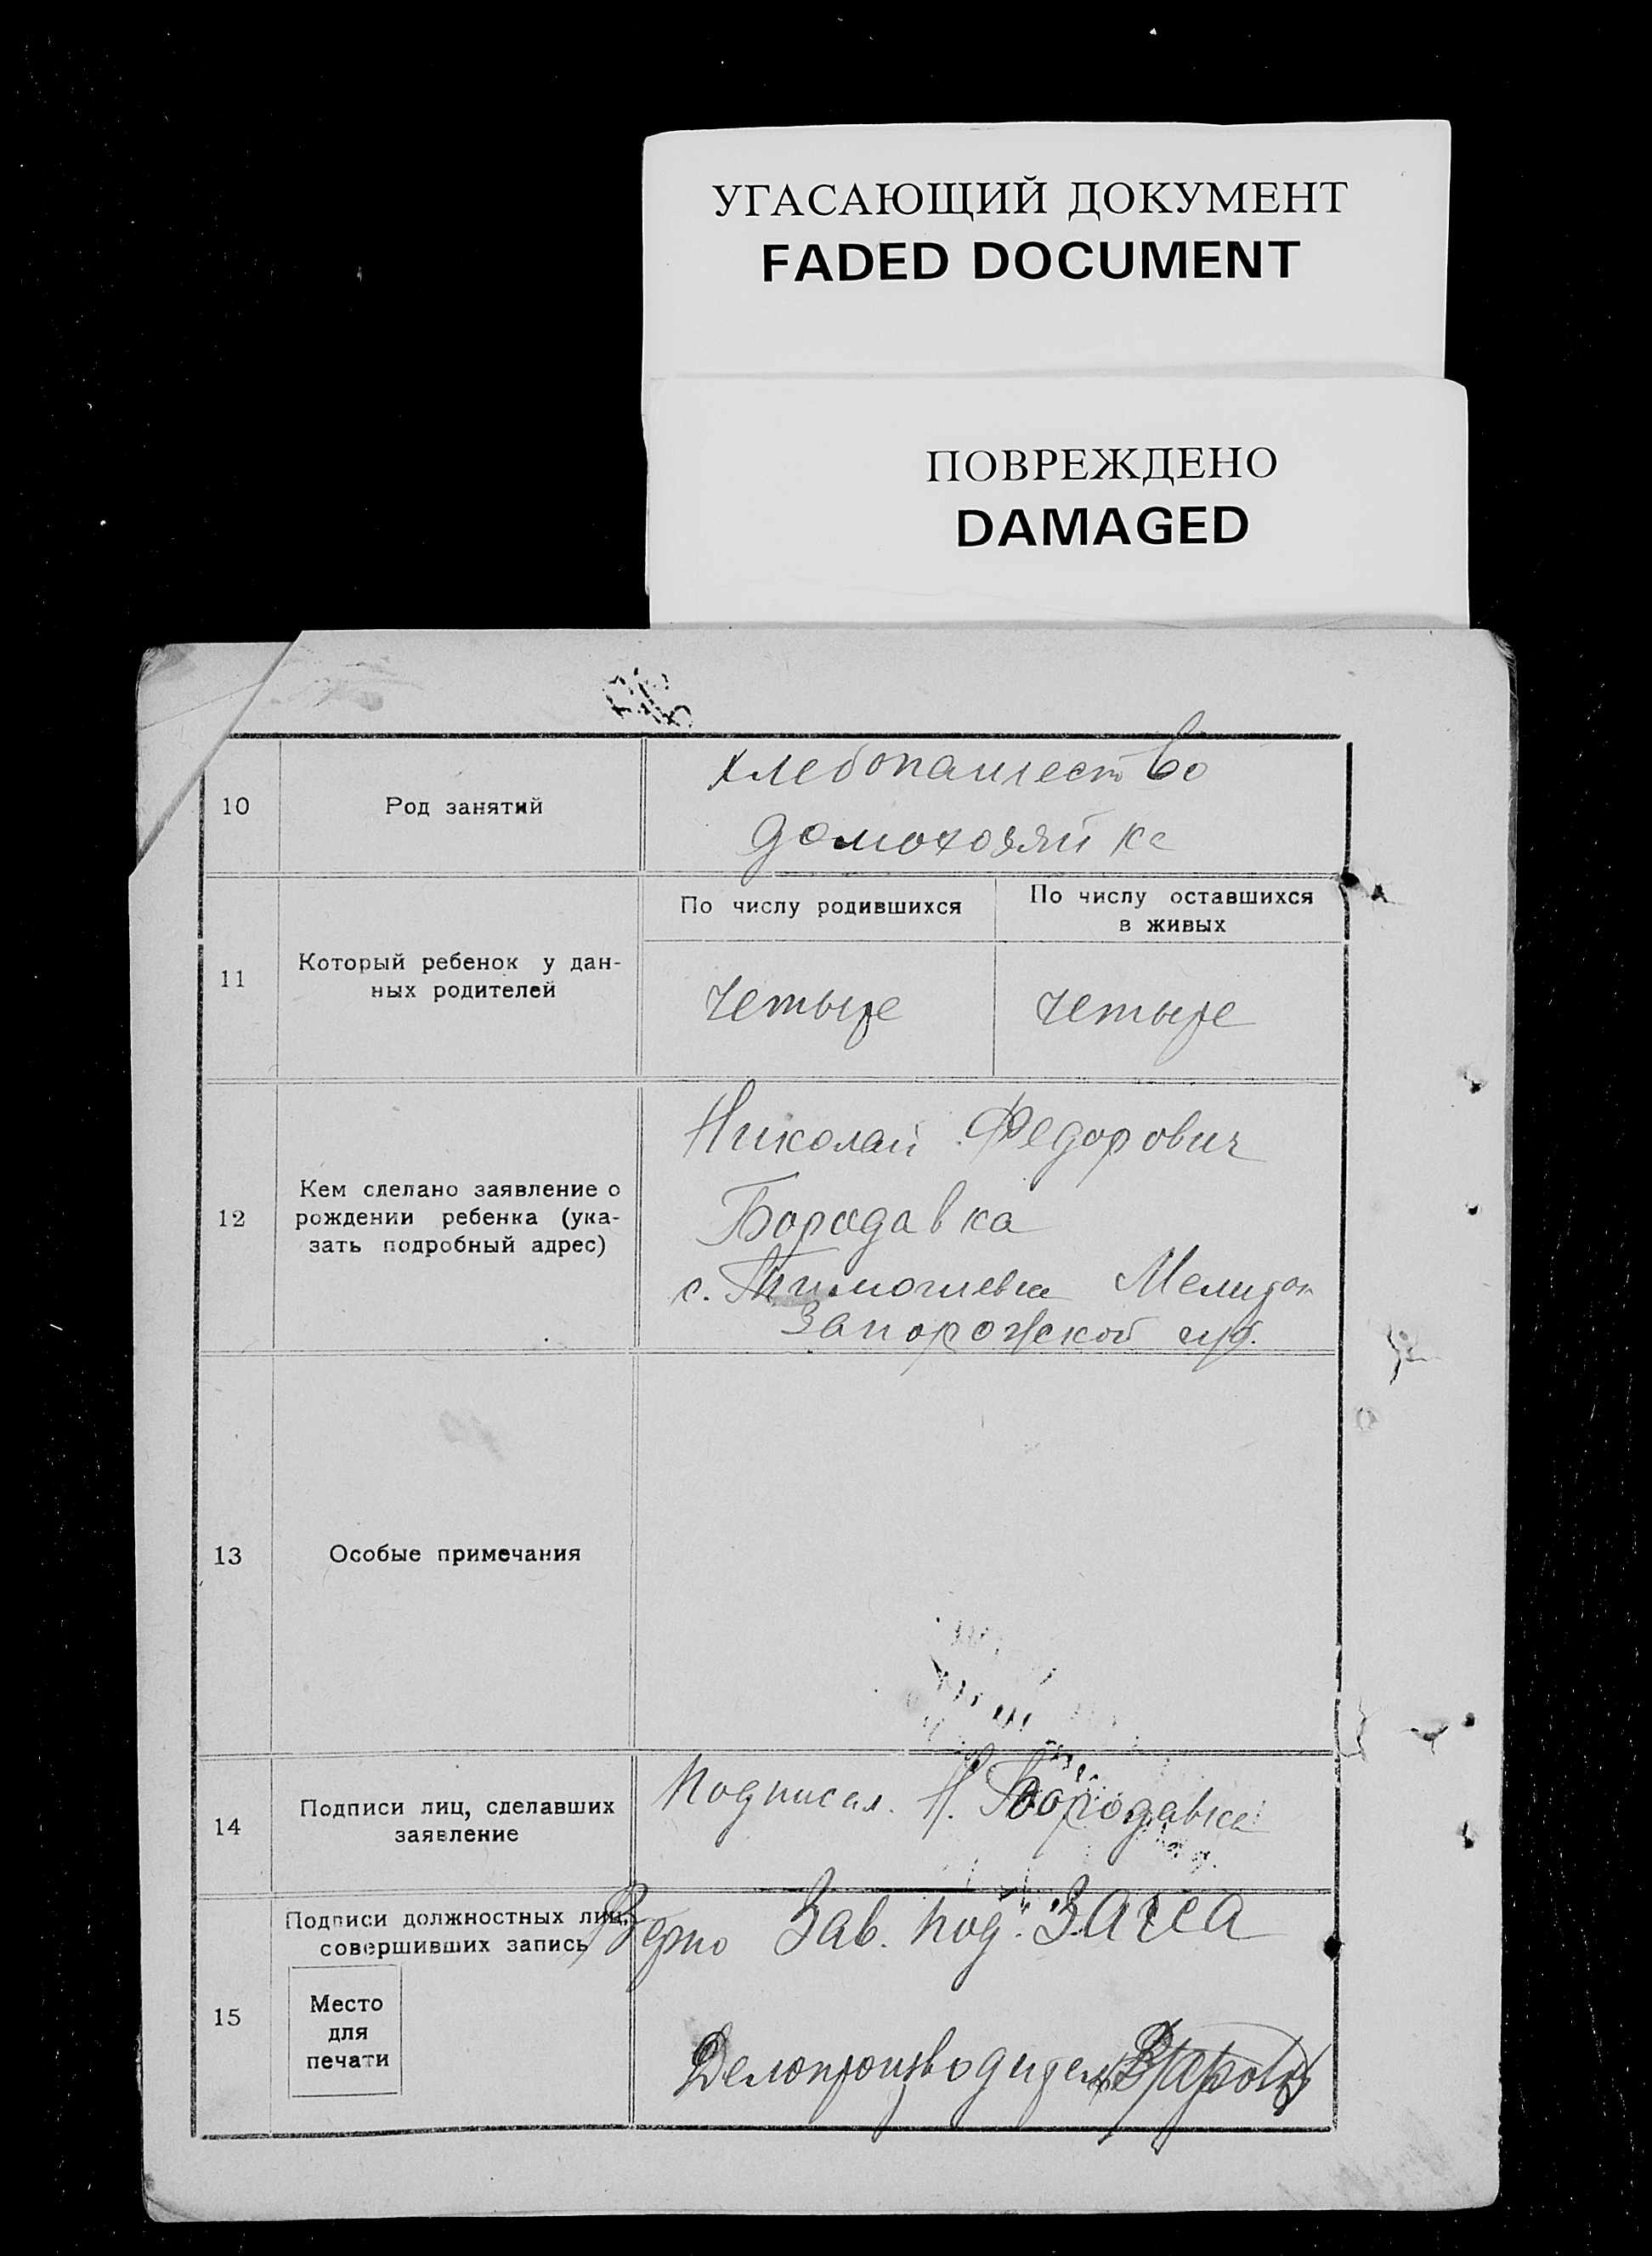 УГАСАЮЩИЙ ДОКУМЕНТ
FADED DOCUMENT
ПОВРЕЖДЕНО
DAMAGED
10
Род занятий
хлебопашество
домохозяйка
11
Который ребенок у дан-
ных родителей
По числу родившихся
По числу оставшихся
в живых
Четыре
Четыре
12
Кем сделано заявление о
рождении ребенка (ука-
зать подробный адрес)
Николай Федорович
Бородавка
с. Тимошевка Мелитоп
Запорожской губ.
13
Особые примечания
14
Подписи лиц, сделавших
заявление
Подписал. Н. Бородавка
15
Подписи должностных лиц,
совершивших запись
Место
для
печати
Верно Зав. под. ЗАГСА
Делопроизводитель